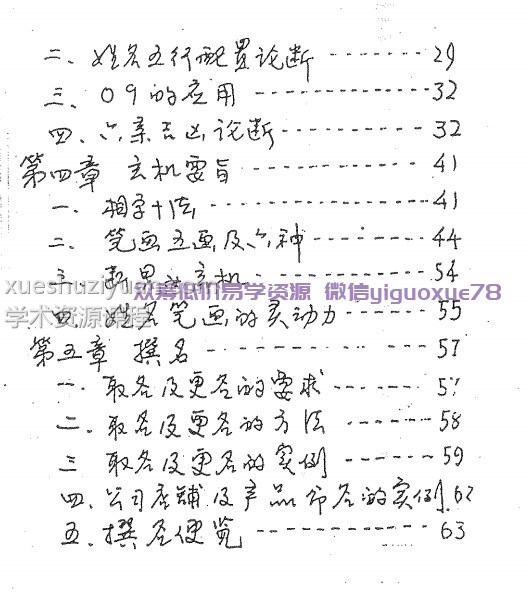 二、姓名五行配置论断 ------- 29
三、09的应用 -------------- 32
四、六亲吉凶论断 ----------- 32
第四章 玄机要旨 ------------ 41
一、相字十法 -------------- 41
二、笔画五画及六神 -------- 44
三、 玄机 -------------- 54
xueshuziyuan
众筹低价易学资源 微信yiguoxue78
四、姓名笔画的灵动力 ------ 55
学术资源
第五章 撰名 -------------- 57
一、取名及更名的要求 ------ 57
二、取名及更名的方法 ------ 58
三 取名及更名的实例 ------ 59
四、公司店铺及产品命名的实例 62
五、撰名便览 ------------ 63